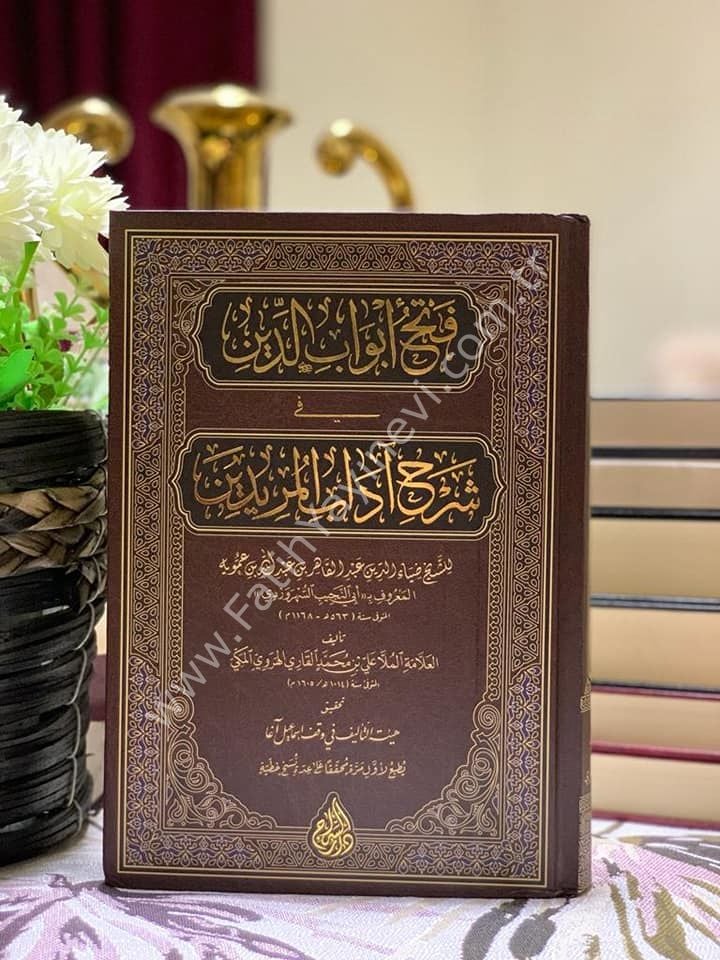 فَتْحُ أَبْوَابِ الدِّينِ
في
شَرْحِ آدَابِ الْمُرِيدِينَ
للشيخ ضياء الدين عبد القاهر بن عبد الله بن عمويه
المعروف بـ «أبي النجيب السهروردي»
المتوفى سنة (٥٦٣هـ - ١١٦٨م)
تأليف
العلامة الملا علي بن محمد القاري الهروي المكي
المتوفى سنة (١٠١٤هـ / ١٦٠٥م)
تحقيق
هيئة التأليف في وقف إسماعيل آغا
يطبع لأول مرة محققا على عدة نسخ خطية
دار السراج
www.FatihYayinevi.com.tr